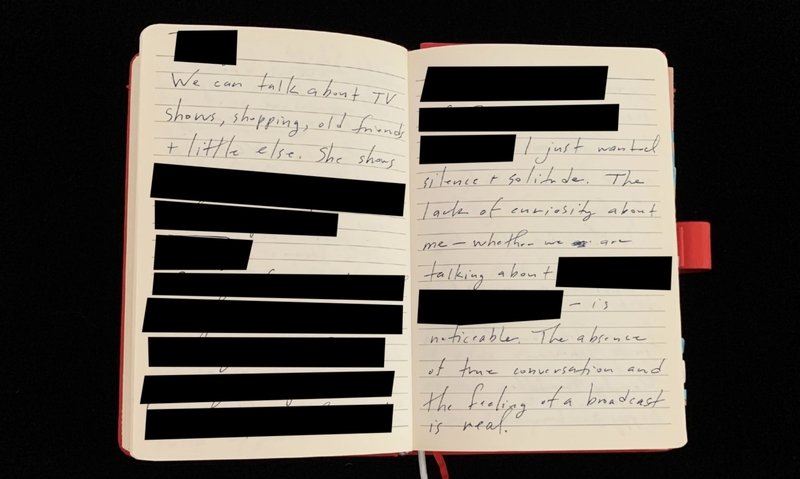 We can talk about TV
shows, shopping, old friends
+ little else. She shows
I just wanted
silence + solitude. The
lack of curiosity about
me – whether we are
talking about
– is
noticeable. The absence
of true conversation and
the feeling of a broadcast
is real.